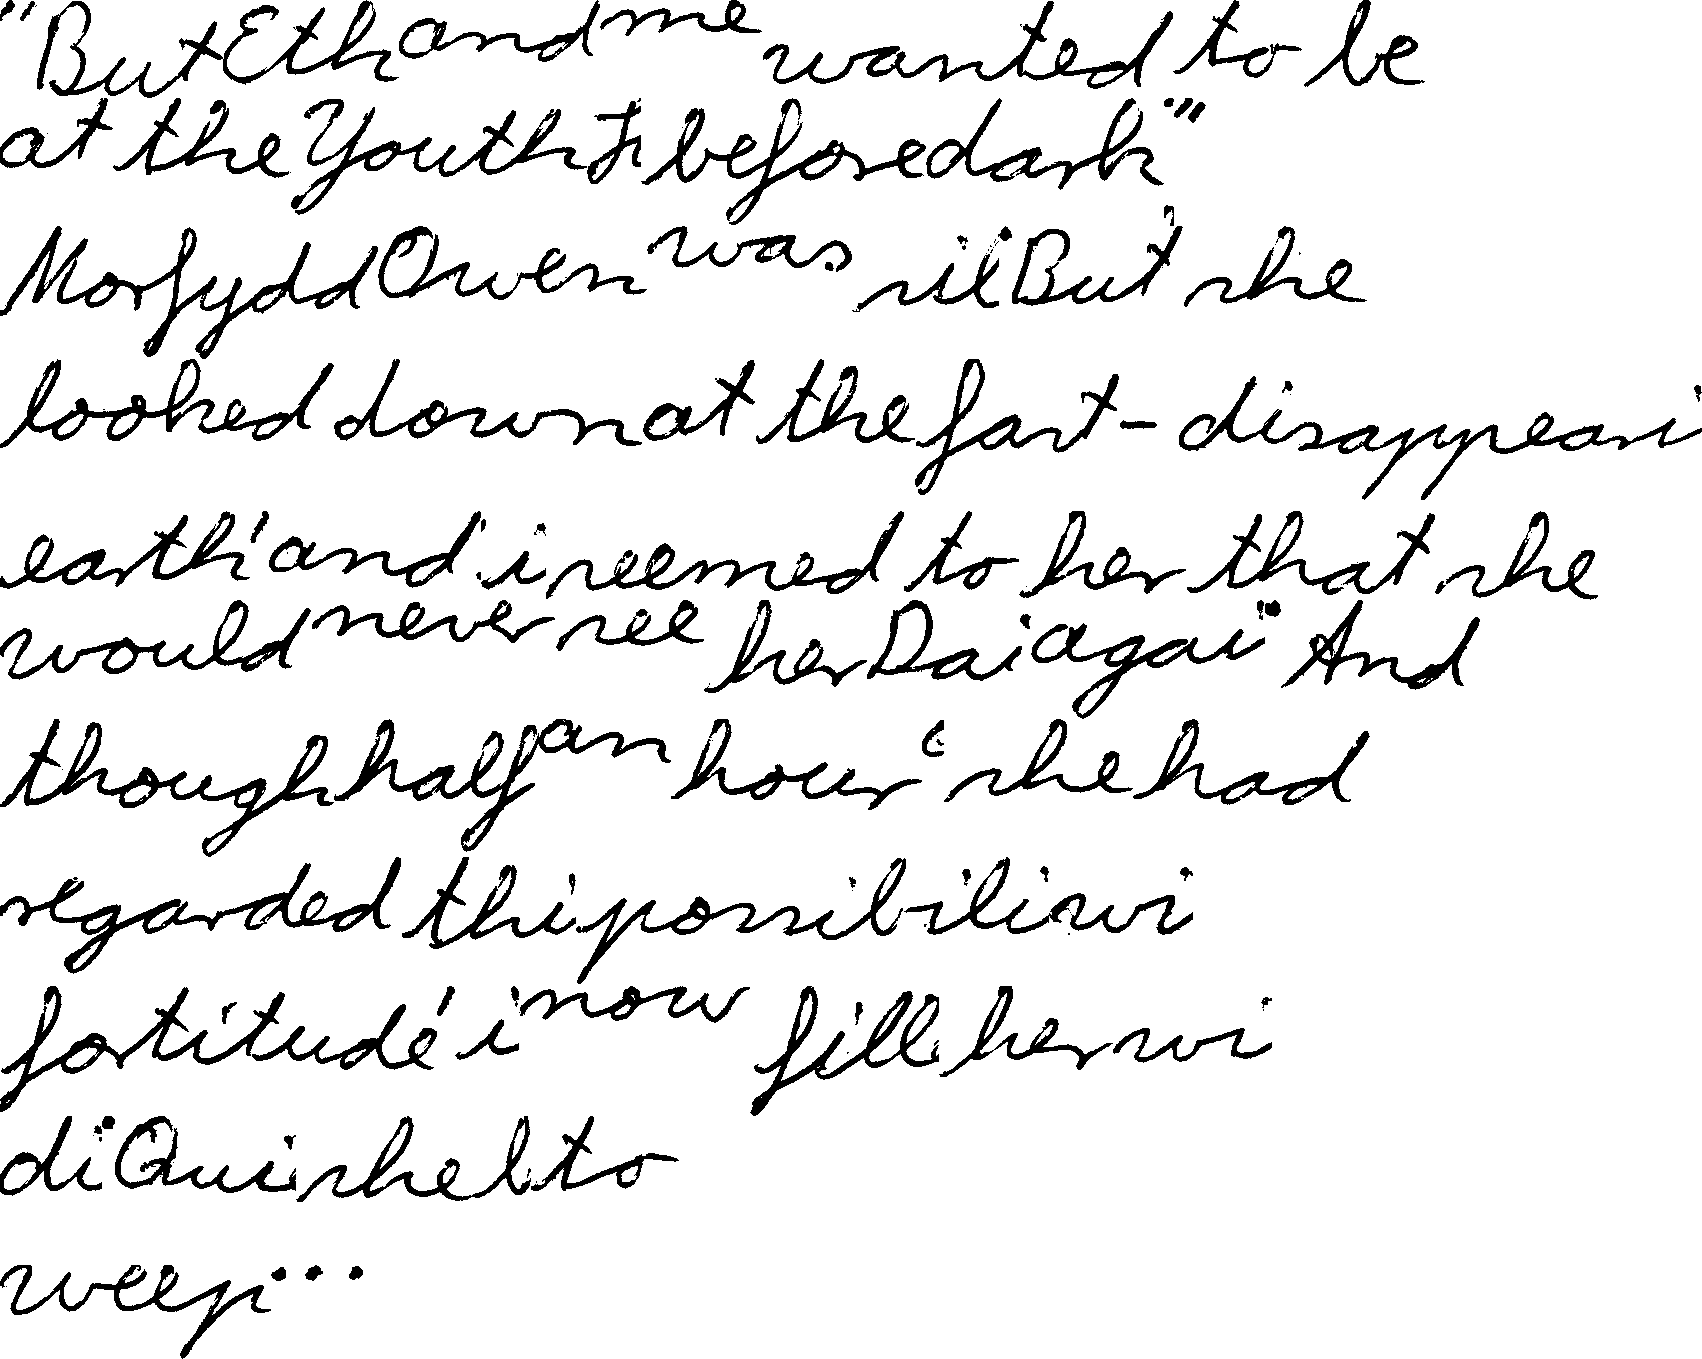 "But Eth and me wanted to be
at the Youth Fi before dark."
Morfydd Owen was sil. But she
looked down at the fast-disappeari
earth, and i seemed to her that she
would never see her Dai agai. And
though half an hour she had
regarded thi possibili wi
fortitude, i now fill her wi
di. Qui she l to
weep...